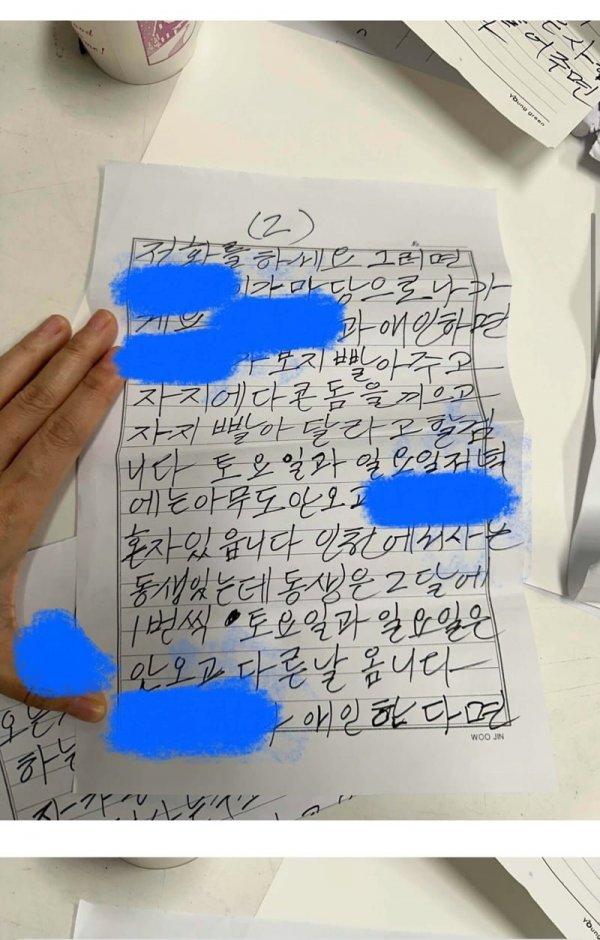 young green
(2)
전화를하세요 그러면
마당으로 나가
게요 과 애인하면
보지 빨아주고
자지에다 콘돔을 끼우고
자지 빨아 달라고 할겁
니다 토요일과 일요일저녁
에는아무도안오고
혼자있읍니다 인천에서사는
동생있는데 동생은 2달에
1번씩 토요일과 일요일은
안오고 다른날 옵니다
애인한다면
WOO JIN
하는